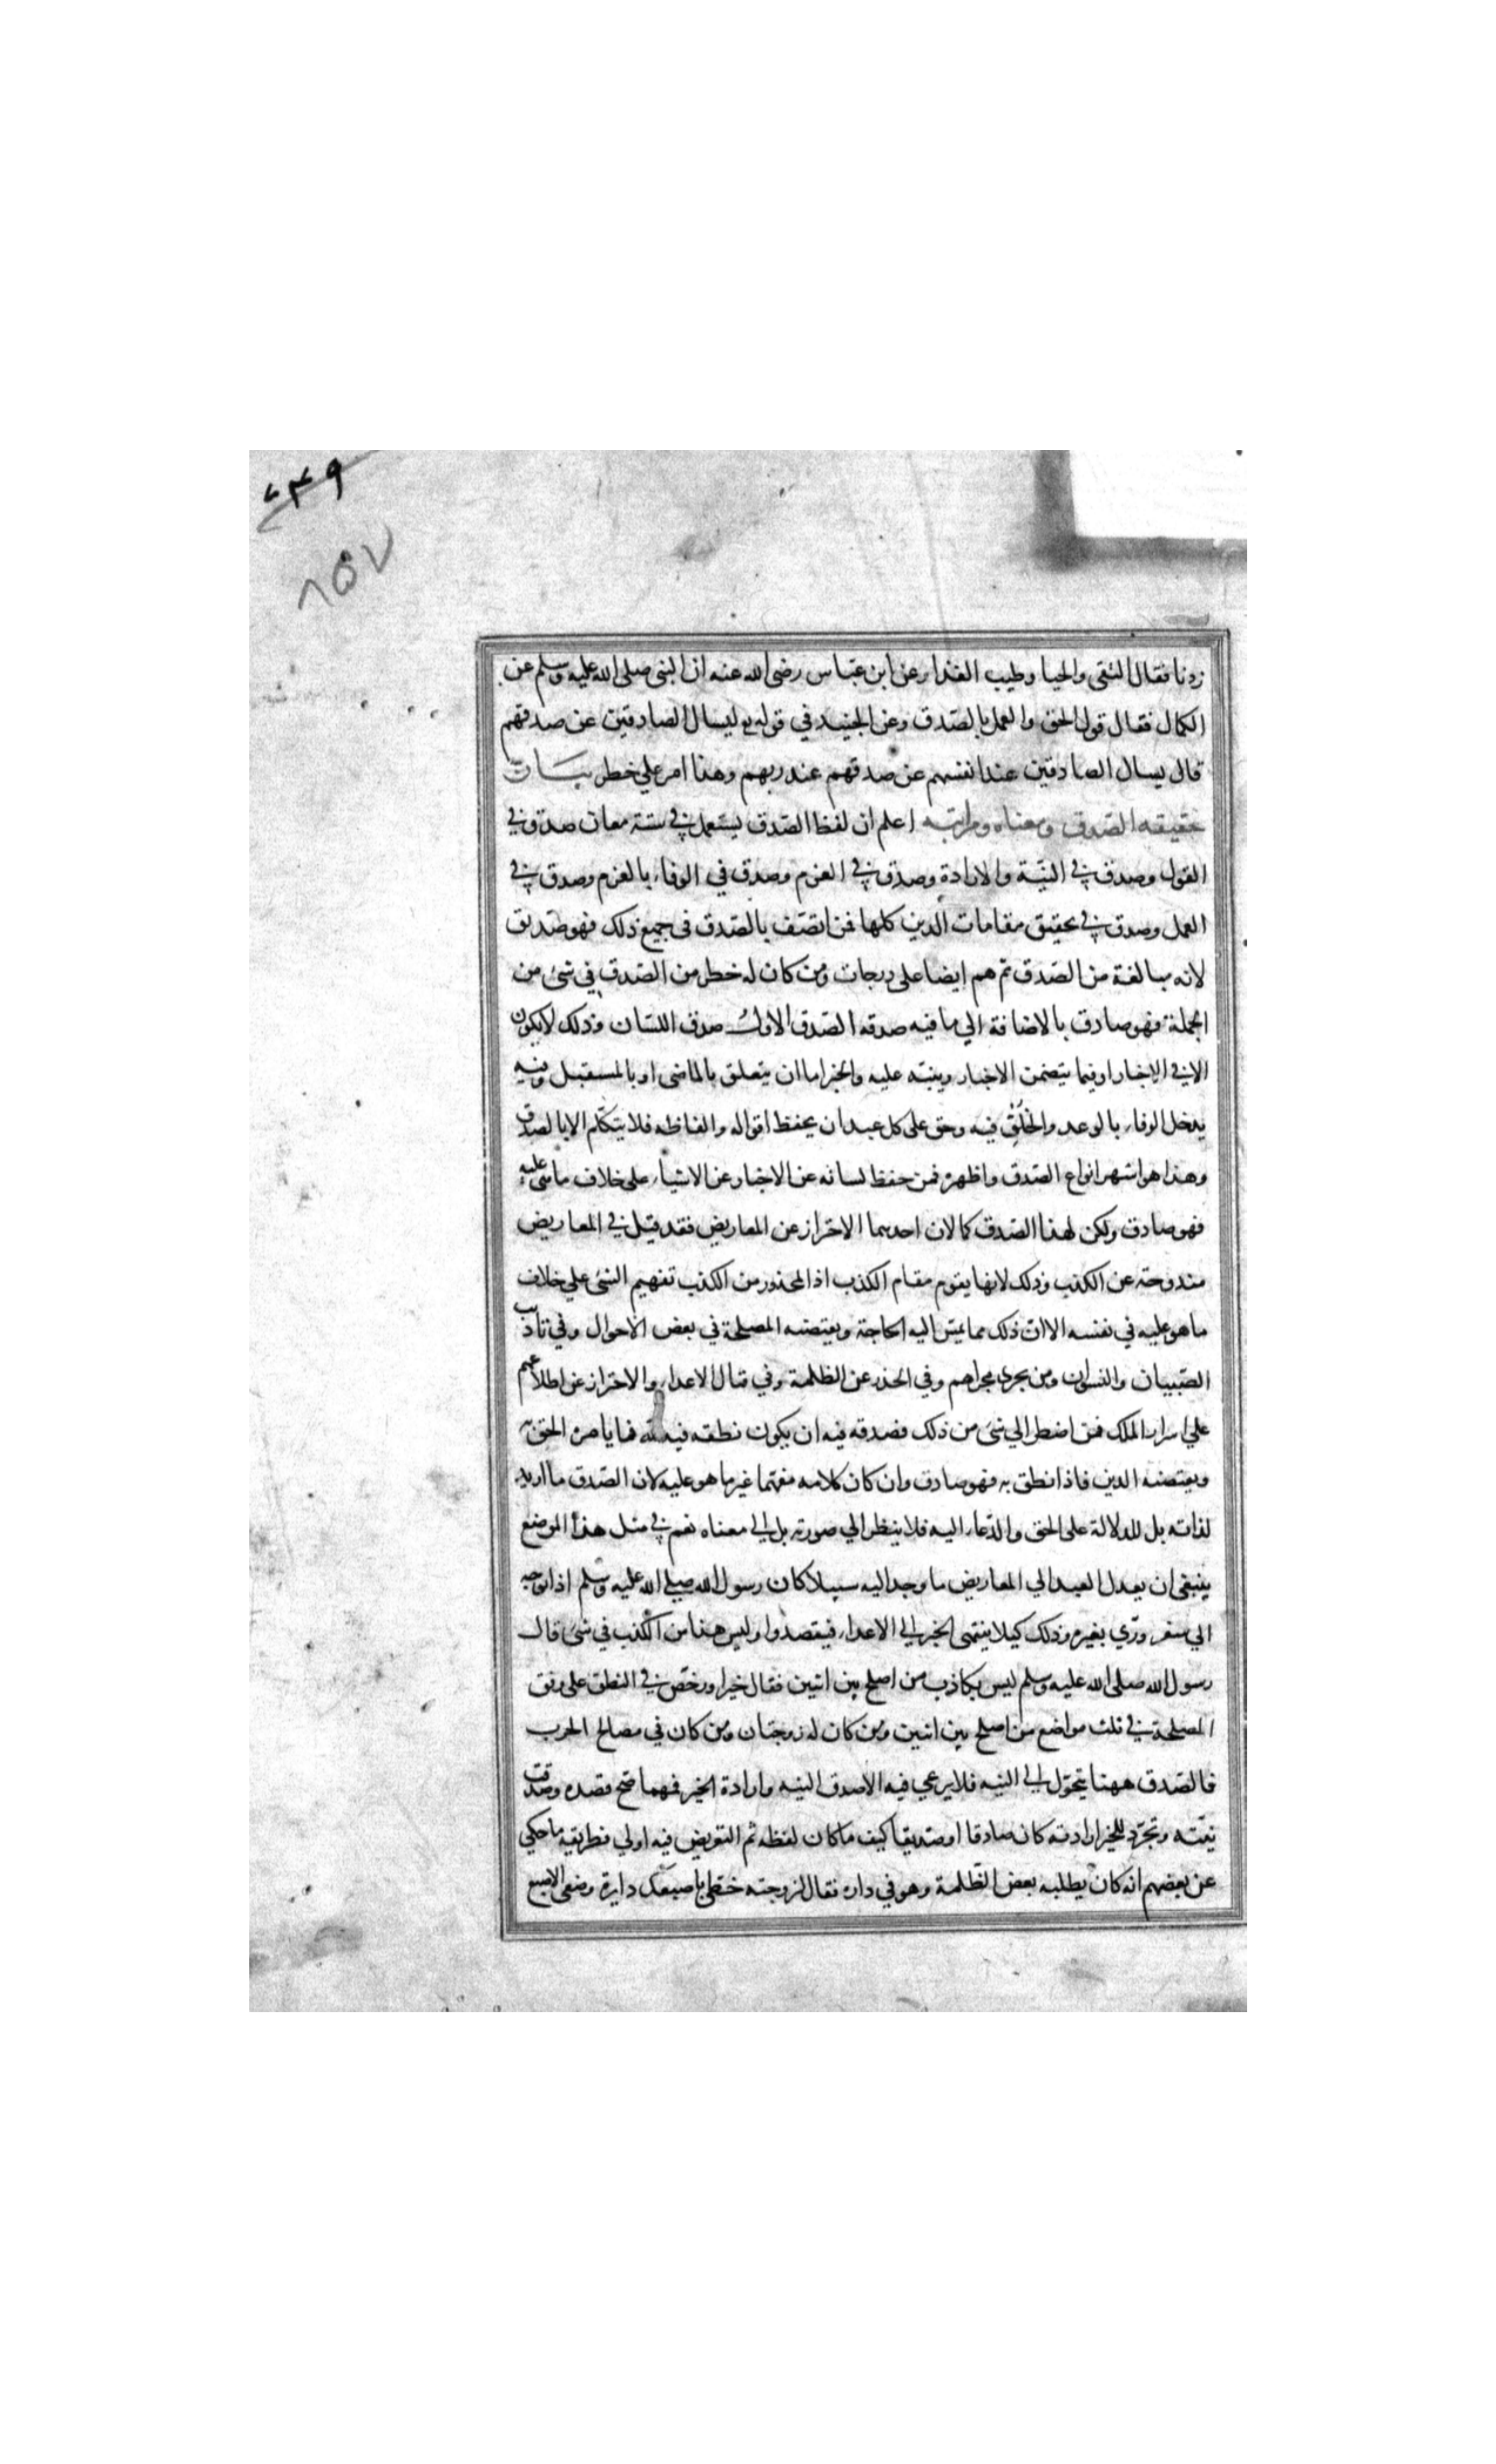 ٦٣٩
٨٥٧
زدنا فقال التقى والحيا وطيب الغذاء وعن ابن عباس رضى الله عنه ان النبى صلى الله عليه وسلم عن
الكمال فقال قول الحق والعمل بالصدق وعن الجنيد في قوله تع ليسال الصادقين عن صدقهم
قال يسال الصادقين عند انفسهم عن صدقهم عند ربهم وهذا امر علي خطر بيان
حقيقه الصدق ومعناه ومراتبه اعلم ان لفظ الصدق يستعمل في ستة معان صدق في
القول وصدق في النية والارادة وصدق في العزم وصدق في الوفاء بالعزم وصدق في
العمل وصدق في تحقيق مقامات الدين كلها فمن اتصف بالصدق في جميع ذلك فهو صديق
لانه مبالغة من الصدق ثم هم ايضا على درجات ومن كان له خطر من الصدق في شئ من
الجملة فهو صادق بالاضافة الي ما فيه صدقه الصدق الاول صدق اللسان وذلك لا يكون
الا في الاخبار او فيما يتضمن الاخبار وينبه عليه والخبر اما ان يتعلق بالماضى او بالمستقبل وفيه
يدخل الوفاء بالوعد والخلف فيه وحق على كل عبد ان يحفظ اقواله والفاظه فلا يتكلم الا بالصدق
وهذا هو اشهر انواع الصدق واظهره فمن حفظ لسانه عن الاخبار عن الاشياء على خلاف ما هى عليه
فهو صادق ولكن لهذا الصدق كمالان احدهما الاحتراز عن المعاريض فقد قيل في المعاريض
مندوحة عن الكذب وذلك لانها يقوم مقام الكذب اذ المحذور من الكذب تفهيم الشئ علي خلاف
ما هو عليه في نفسه الا ان ذلك مما يمس اليه الحاجة ويقتضيه المصلحة في بعض الاحوال وفي تاديب
الصبيان والنسوان ومن يجرى مجراهم وفي الحذر عن الظلمة وفي قتال الاعداء والاحتراز عن اطلاعهم
على اسرار الملك فمن اضطر الي شئ من ذلك فصدقه فيه ان يكون نطقه فيه لله فيما يامره الحق به
ويقتضيه الدين فاذا نطق به فهو صادق وان كان كلامه مفهما غير ما هو عليه لان الصدق ما اريد
لذاته بل للدلالة على الحق والدعاء اليه فلا ينظر الي صورته بل الى معناه نعم في مثل هذا الموضع
ينبغى ان يعدل العبد الي المعاريض ما وجد اليه سبيلا كان رسول الله صلي الله عليه وسلم اذا توجه
الي سفر ورّي بغيره وذلك كيلا ينتهى الخبر الى الاعداء فيقصدوا وليس هذا من الكذب في شئ قال
رسول الله صلى الله عليه وسلم ليس بكاذب من اصلح بين اثنين فقال خيرا ورخص في النطق على وفق
المصلحة في ثلث مواضع من اصلح بين اثنين ومن كان له زوجتان ومن كان في مصالح الحرب
فالصدق ههنا يتحول الى النيه فلا يرعي فيه الا صدق النيه وارادة الخير فمهما صح قصده وصدقت
نيته وتجرد للخير ارادته كان صادقا او صديقا كيف ما كان لفظه ثم التعويض فيه اولي فطريقه ما حكي
عن بعضهم انه كان يطلبه بعض الظلمة وهو في داره فقال لزوجته خطى باصبعك دايرة وضعى الاصبع